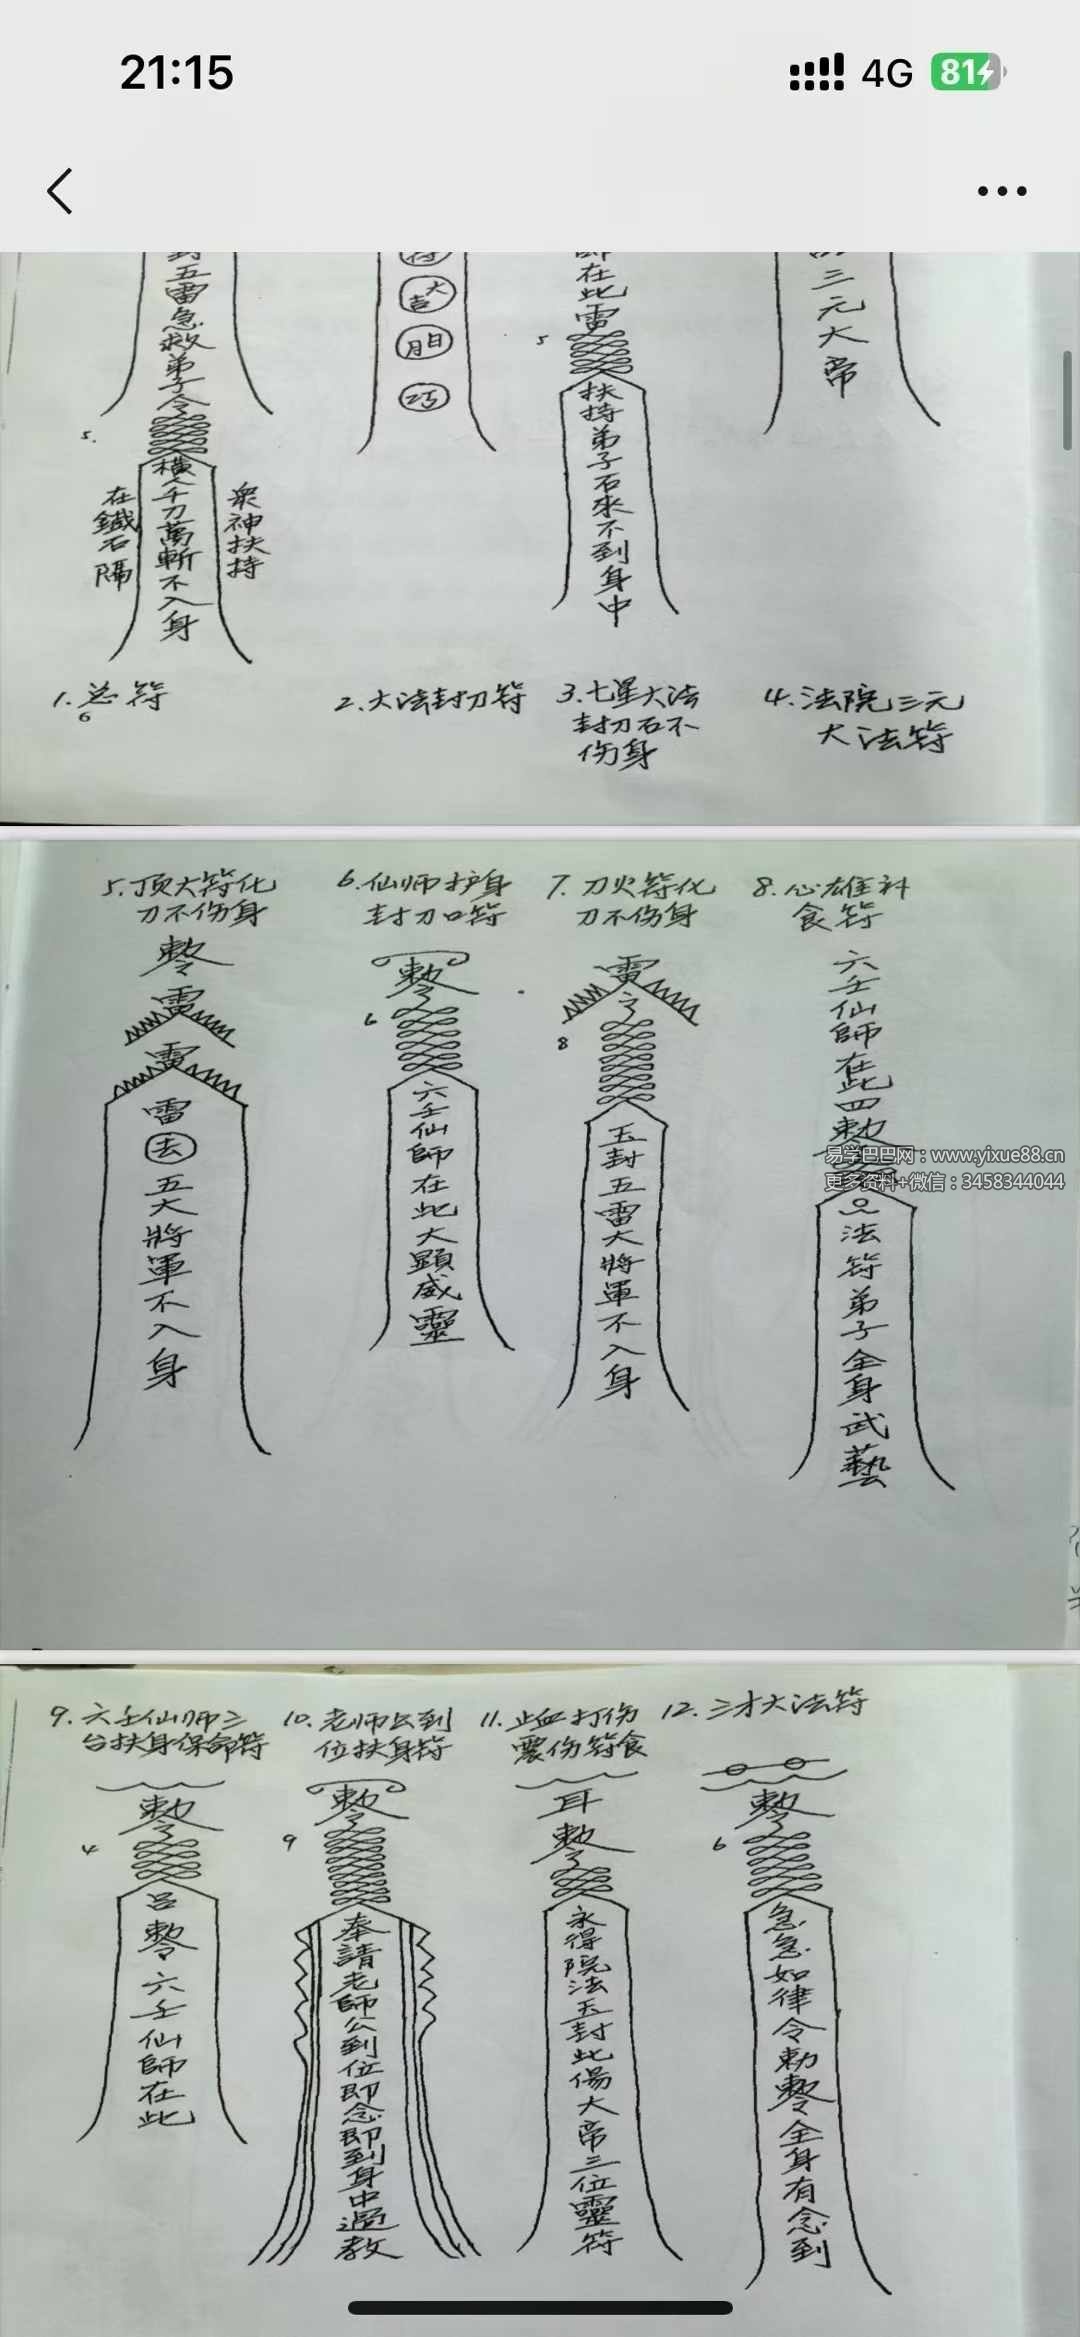 21:15
4G
81
五雷急救弟子令
5.
橫人千刀萬斬不入身
在鐵石隔
眾神扶持
大吉
月日
巧
在此雷
5
扶持弟子石來不到身中
三元大帝
1.总符
6
2.大法封刀符
3.七星大法
封刀石不
伤身
4.法院三元
大法符
5.顶大符化
刀不伤身
雷
雷
雷
去
五大將軍不入身
6.仙师护身
封刀口符
6
六壬仙師在此大顯威靈
7.刀火符化
刀不伤身
雷
8
玉封五雷大將軍不入身
8.心雄补
食符
六壬仙師在此四敕
法符弟子全身武藝
易学巴巴网：www.yixue88.cn
更多资料+微信：3458344044
9.六壬仙师三
台扶身保命符
敕令
4
呂
六壬仙師在此
10.老师公到
位扶身符
敕令
9
奉請老師公到位即念即到身中過教
11.止血打伤
震伤符食
耳
敕令
永得院法玉封此傷大帝三位靈符
12.三才大法符
敕令
6
急急如律令勅
全身有念到